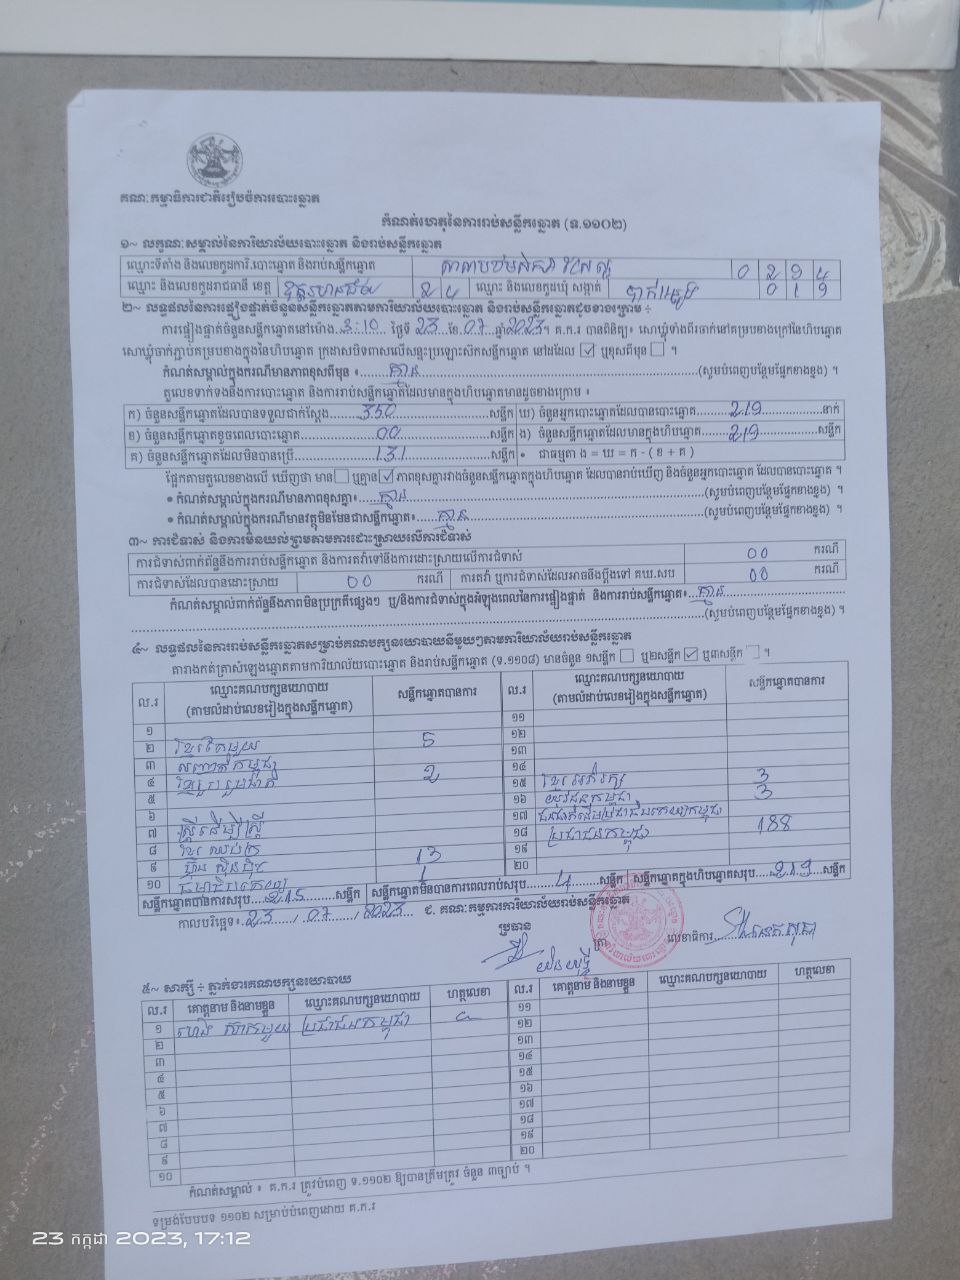 គណៈកម្មាធិការជាតិរៀបចំការបោះឆ្នោត
កំណត់ហេតុនៃការរាប់សន្លឹកឆ្នោត (ទ.១១០២)
១~ លក្ខណៈសម្គាល់នៃការិយាល័យបោះឆ្នោត និងរាប់សន្លឹកឆ្នោត
ឈ្មោះទីតាំង និងលេខកូដការិ.បោះឆ្នោត និងរាប់សន្លឹកឆ្នោត 0 2 9 4
ឈ្មោះ និងលេខកូដរាជធានី ខេត្ត ឧត្តរមានជ័យ 2 4 ឈ្មោះ និងលេខកូដឃុំ សង្កាត់ 0 1 9
២~ លទ្ធផលនៃការផ្ទៀងផ្ទាត់ចំនួនសន្លឹកឆ្នោតតាមការិយាល័យបោះឆ្នោត និងរាប់សន្លឹកឆ្នោតដូចខាងក្រោម ÷
ការផ្ទៀងផ្ទាត់ចំនួនសន្លឹកឆ្នោតនៅម៉ោង 3:10 ថ្ងៃទី 23 ខែ 07 ឆ្នាំ 2023។ គ.ក.រ បានពិនិត្យ៖ សោឃ្លុំទាំងពីរចាក់នៅគម្របខាងក្រៅនៃហិបឆ្នោត
សោឃ្លុំចាក់ភ្ជាប់គម្របខាងក្នុងនៃហិបឆ្នោត ក្រដាសបិទពាសលើសន្ទះប្រឡោះស៊កសន្លឹកឆ្នោត នៅដដែល ☑ ឬខុសពីមុន ☐ ។
កំណត់សម្គាល់ក្នុងករណីមានភាពខុសពីមុន ៖ គ្មាន (សូមបំពេញបន្ថែមផ្នែកខាងខ្នង) ។
តួលេខទាក់ទងនឹងការបោះឆ្នោត និងការរាប់សន្លឹកឆ្នោតដែលមានក្នុងហិបឆ្នោតមានដូចខាងក្រោម ៖
ក) ចំនួនសន្លឹកឆ្នោតដែលបានទទួលជាក់ស្តែង 350 សន្លឹក ឃ) ចំនួនអ្នកបោះឆ្នោតដែលបានបោះឆ្នោត 219 នាក់
ខ) ចំនួនសន្លឹកឆ្នោតខូចពេលបោះឆ្នោត 00 សន្លឹក ង) ចំនួនសន្លឹកឆ្នោតដែលមានក្នុងហិបឆ្នោត 219 សន្លឹក
គ) ចំនួនសន្លឹកឆ្នោតដែលមិនបានប្រើ 131 សន្លឹក • ជាធម្មតា ង = ឃ = ក - ( ខ + គ )
ផ្អែកតាមតួលេខខាងលើ ឃើញថា មាន ☐ ឬគ្មាន ☑ ភាពខុសគ្នារវាងចំនួនសន្លឹកឆ្នោតក្នុងហិបឆ្នោត ដែលបានរាប់ឃើញ និងចំនួនអ្នកបោះឆ្នោត ដែលបានបោះឆ្នោត ។
• កំណត់សម្គាល់ក្នុងករណីមានភាពខុសគ្នា៖ គ្មាន (សូមបំពេញបន្ថែមផ្នែកខាងខ្នង) ។
• កំណត់សម្គាល់ក្នុងករណីមានវត្ថុមិនមែនជាសន្លឹកឆ្នោត៖ គ្មាន (សូមបំពេញបន្ថែមផ្នែកខាងខ្នង) ។
៣~ ការជំទាស់ និងការមិនយល់ព្រមតាមការដោះស្រាយលើការជំទាស់
ការជំទាស់ពាក់ព័ន្ធនឹងការរាប់សន្លឹកឆ្នោត និងការតវ៉ាទៅនឹងការដោះស្រាយលើការជំទាស់ 00 ករណី
ការជំទាស់ដែលបានដោះស្រាយ 00 ករណី ការតវ៉ា ឬការជំទាស់ដែលអាចនឹងប្តឹងទៅ គឃ.សប 00 ករណី
កំណត់សម្គាល់ពាក់ព័ន្ធនឹងភាពមិនប្រក្រតីផ្សេងៗ ឬ/និងការជំទាស់ក្នុងអំឡុងពេលនៃការផ្ទៀងផ្ទាត់ និងការរាប់សន្លឹកឆ្នោត៖ គ្មាន
(សូមបំពេញបន្ថែមផ្នែកខាងខ្នង) ។
៤~ លទ្ធផលនៃការរាប់សន្លឹកឆ្នោតសម្រាប់គណបក្សនយោបាយនីមួយៗតាមការិយាល័យរាប់សន្លឹកឆ្នោត
តារាងកត់ត្រាសំឡេងឆ្នោតតាមការិយាល័យបោះឆ្នោត និងរាប់សន្លឹកឆ្នោត (ទ.១១០៨) មានចំនួន ១សន្លឹក ☐ ឬ២សន្លឹក ☑ ឬ៣សន្លឹក ☐ ។
ល.រ ឈ្មោះគណបក្សនយោបាយ (តាមលំដាប់លេខរៀងក្នុងសន្លឹកឆ្នោត) សន្លឹកឆ្នោតបានការ ល.រ ឈ្មោះគណបក្សនយោបាយ (តាមលំដាប់លេខរៀងក្នុងសន្លឹកឆ្នោត) សន្លឹកឆ្នោតបានការ
១ ១១
២ ខ្មែរតែមួយ 5 ១២
៣ សញ្ជាតិកម្ពុជា ១៣
៤ ខ្មែររួបរួមជាតិ 2 ១៤
៥ ១៥ ខ្មែរអភិរក្ស 3
៦ ១៦ យុវជនកម្ពុជា 3
៧ ស្ត្រីដើម្បីស្ត្រី ១៧
៨ ខ្មែរឈប់ក្រ ១៨ ប្រជាជនកម្ពុជា 188
៩ ហ៊្វុនស៊ិនប៉ិច 13 ១៩
១០ 1 ២០
សន្លឹកឆ្នោតបានការសរុប 215 សន្លឹក សន្លឹកឆ្នោតមិនបានការពេលរាប់សរុប 4 សន្លឹក សន្លឹកឆ្នោតក្នុងហិបឆ្នោតសរុប 219 សន្លឹក
កាលបរិច្ឆេទ៖ 23 / 07 / 2023 ជ. គណៈកម្មការការិយាល័យរាប់សន្លឹកឆ្នោត
ប្រធាន
ត្រា លេខាធិការ
៥~ សាក្សី ÷ ភ្នាក់ងារគណបក្សនយោបាយ
ល.រ គោត្តនាម និងនាមខ្លួន ឈ្មោះគណបក្សនយោបាយ ហត្ថលេខា ល.រ គោត្តនាម និងនាមខ្លួន ឈ្មោះគណបក្សនយោបាយ ហត្ថលេខា
១ ប្រជាជនកម្ពុជា ១១
២ ១២
៣ ១៣
៤ ១៤
៥ ១៥
៦ ១៦
៧ ១៧
៨ ១៨
៩ ១៩
១០ ២០
កំណត់សម្គាល់ ៖ គ.ក.រ ត្រូវបំពេញ ទ.១១០២ ឱ្យបានត្រឹមត្រូវ ចំនួន ៣ច្បាប់ ។
ទម្រង់បែបបទ ១១០២ សម្រាប់បំពេញដោយ គ.ក.រ
23 កក្កដា 2023, 17:12